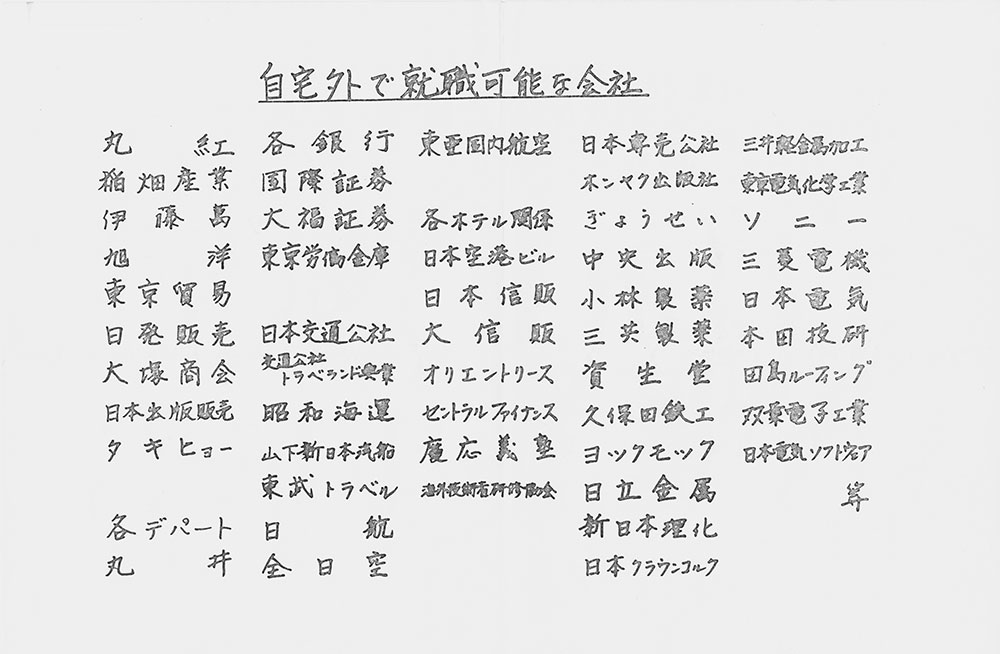 自宅外で就職可能な会社
丸紅
稲畑産業
伊藤萬
旭洋
東京貿易
日発販売
大塚商会
日本出版販売
タキヒョー
各デパート
丸井
各銀行
国際証券
大福証券
東京労働金庫
日本交通公社
交通公社
トラベランド興業
昭和海運
山下新日本汽船
東武トラベル
日航
全日空
東亜国内航空
各ホテル関係
日本空港ビル
日本信販
大信販
オリエントリース
セントラルファイナンス
慶応義塾
海外技術者研修協会
日本専売公社
ホンヤク出版社
ぎょうせい
中央出版
小林製薬
三英製薬
資生堂
久保田鉄工
ヨックモック
日立金属
新日本理化
日本クラウンコルク
三井軽金属加工
東京電気化学工業
ソニー
三菱電機
日本電気
本田技研
田島ルーフィング
双葉電子工業
日本電気ソフトウェア
等